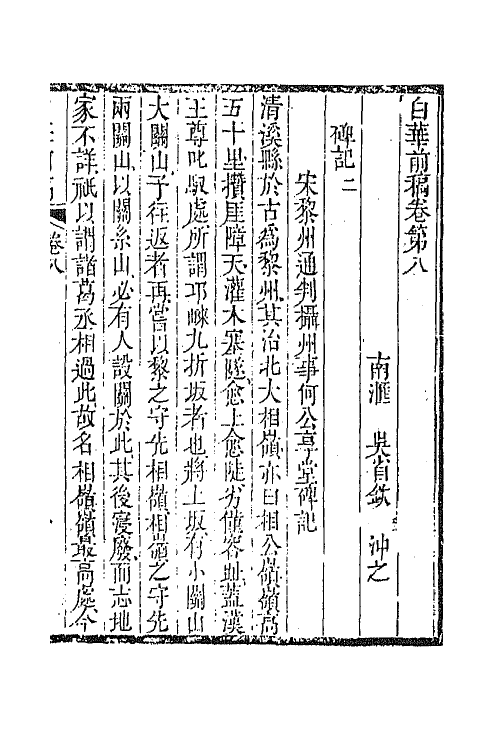 白華前稿卷第八
南滙　吳省欽　沖之
碑記二
宋黎州通判攝州事何公享堂碑記
清溪縣於古爲黎州其治北大相嶺亦曰相公嶺嶺高
五十里攢崖障天灌木塞隧愈上愈陡劣僅容趾蓋漢
王尊叱馭處所謂邛崍九折坂者也將上坂有小關山
大關山予往返者再嘗以黎之守先相嶺相嶺之守先
兩關山以關系山必有人設關於此其後寖廢而志地
家不詳祇以謂諸葛丞相過此故名相嶺嶺最高處今
卷八